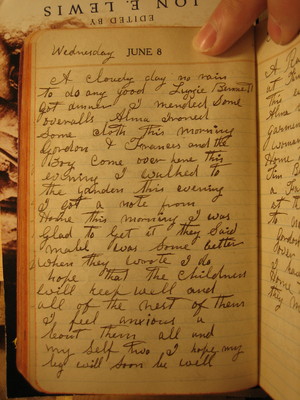 ION E. LEWIS
EDITED BY
Wednesday JUNE 8
A cloudy day no rain
to do any good Lizzie Bennett
got dinner I mended some
overalls Alma ironed
Some cloth this morning
Gordon & Frances and the
Boy Come over here this
evening I walked to
the garden this evening
I got a note from
Home this morning I was
Glad to Get it they said
mabel was some better
when they wrote I do
hope that the children
will keep well and
all of the rest of them
I feel anxious a
bout them all and
my self two I hope my
leg will soon be well